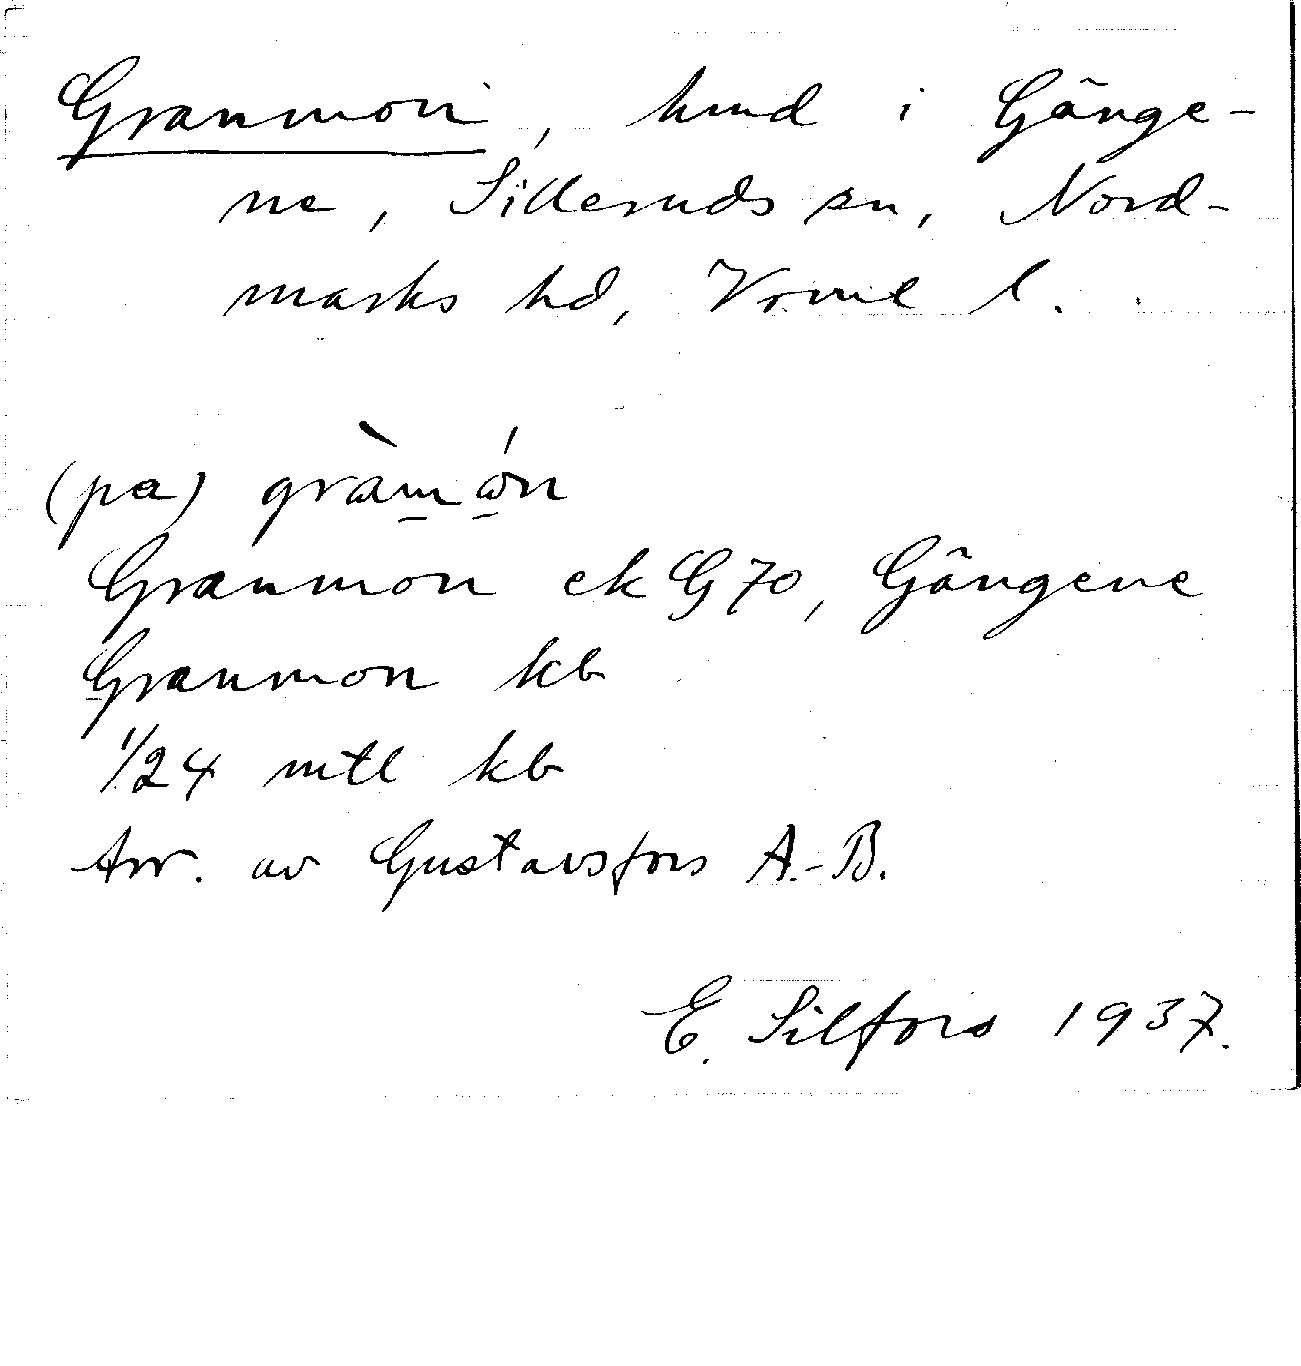 Granmon, hmd i Gänge-
ne, Silleruds sn, Nord-
marks hd, Vrml l.
(pa) gràmǿn
Granmon ek G 70, Gängene
Granmon kb
1/24 mtl kb
Arr. av Gustavsfors A.-B.
E. Silfors 1937.